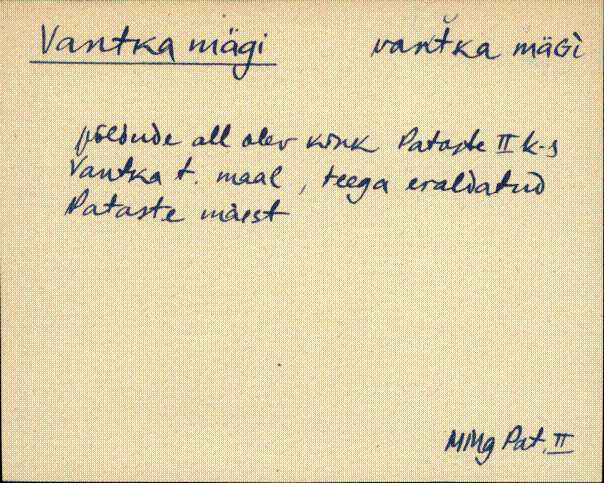 Vantka mägi vantka mäGì
põldude all olev kink Pataste II k-s
Vantka t. maal, teega eraldatud
Pataste mäest
MMg Pat. II